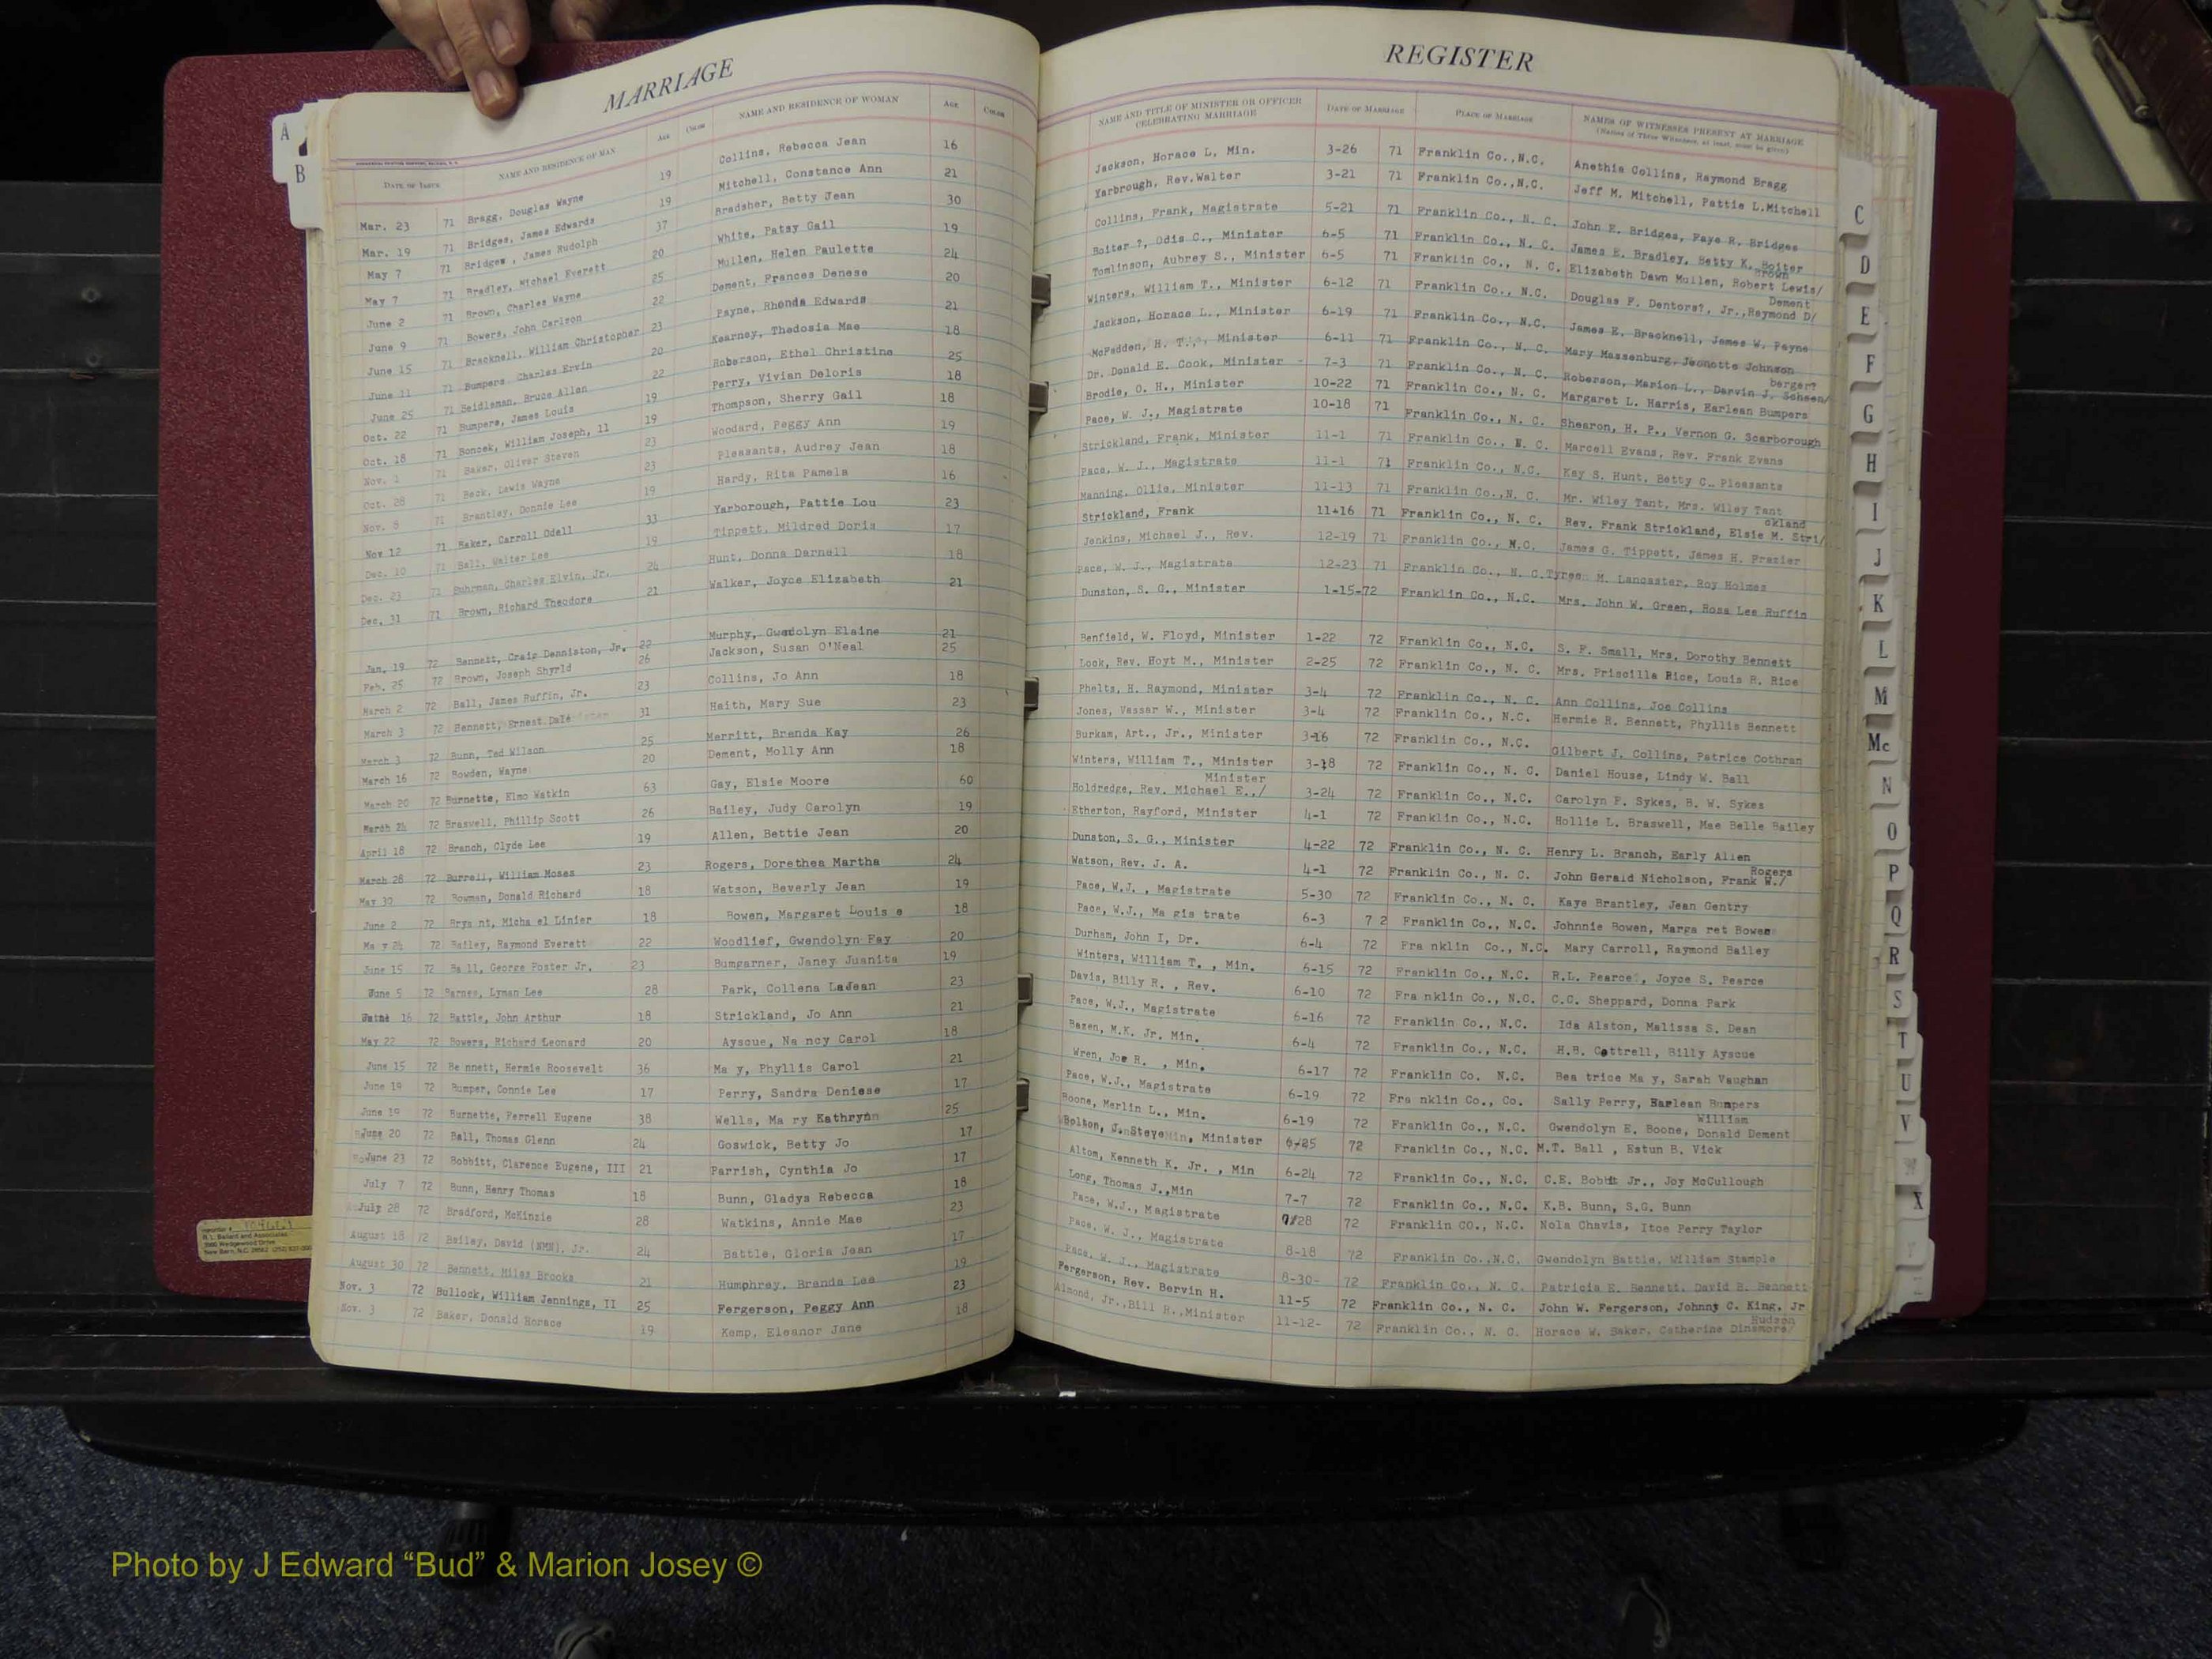 MARRIAGE
REGISTER
DATE OF ISSUE NAME AND RESIDENCE OF MAN AGE COLOR NAME AND RESIDENCE OF WOMAN AGE COLOR
NAME AND TITLE OF MINISTER OR OFFICER CELEBRATING MARRIAGE DATE OF MARRIAGE PLACE OF MARRIAGE NAMES OF WITNESSES PRESENT AT MARRIAGE
(Names of Three Witnesses, at least, must be given)
Mar. 23 71 Bragg, Douglas Wayne 19 Collins, Rebecca Jean 16 Jackson, Horace L, Min. 3-26 71 Franklin Co.,N.C. Anethia Collins, Raymond Bragg
Mar. 19 71 Bridges, James Edwards 19 Mitchell, Constance Ann 21 Yarbrough, Rev.Walter 3-21 71 Franklin Co.,N.C. Jeff M. Mitchell, Pattie L.Mitchell
May 7 71 Bridges , James Rudolph 37 Bradsher, Betty Jean 30 Collins, Frank, Magistrate 5-21 71 Franklin Co., N. C. John E. Bridges, Faye R. Bridges
May 7 71 Bradley, Michael Everett 20 White, Patsy Gail 19 Boiter ?, Odis C., Minister 6-5 71 Franklin Co., N. C. James E. Bradley, Betty K. Boiter
June 2 71 Brown, Charles Wayne 25 Mullen, Helen Paulette 24 Tomlinson, Aubrey S., Minister 6-5 71 Franklin Co., N. C. Elizabeth Dawn Mullen, Robert Lewis/ Brown
June 9 71 Bowers, John Carlson 22 Dement, Frances Denese 20 Winters, William T., Minister 6-12 71 Franklin Co., N.C. Douglas F. Dentors?, Jr.,Raymond D/ Dement
June 15 71 Bracknell, William Christopher 23 Payne, Rhonda Edwards 21 Jackson, Horace L., Minister 6-19 71 Franklin Co., N.C. James E. Bracknell, James W. Payne
June 11 71 Bumpers Charles Ervin 20 Kearney, Thedosia Mae 18 McFadden, H. T., Minister 6-11 71 Franklin Co., N. C. Mary Massenburg, Jeannotte Johnson
June 25 71 Beidleman, Bruce Allen 22 Roberson, Ethel Christine 25 Dr. Donald E. Cook, Minister - 7-3 71 Franklin Co., N. C. Roberson, Marion L., Darvin J. Scheen/ berger?
Oct. 22 71 Bumpers, James Louis 19 Perry, Vivian Deloris 18 Brodie, O. H., Minister 10-22 71 Franklin Co., N. C. Margaret L. Harris, Earlean Bumpers
Oct. 18 71 Boncek, William Joseph, 11 19 Thompson, Sherry Gail 18 Pace, W. J., Magistrate 10-18 71 Franklin Co., N. C. Shearon, H. P., Vernon G. Scarborough
Nov. 1 71 Baker, Oliver Steven 23 Woodard, Peggy Ann 19 Strickland, Frank, Minister 11-1 71 Franklin Co., N. C. Marcell Evans, Rev. Frank Evans
Oct. 28 71 Beck, Lewis Wayne 23 Pleasants, Audrey Jean 18 Pace, W. J., Magistrate 11-1 71 Franklin Co., N.C. Kay S. Hunt, Betty C. Pleasants
Nov. 8 71 Brantley, Donnie Lee 19 Hardy, Rita Pamela 16 Manning, Ollie, Minister 11-13 71 Franklin Co.,N. C. Mr. Wiley Tant, Mrs. Wiley Tant
Nov 12 71 Baker, Carroll Odell 33 Yarborough, Pattie Lou 23 Strickland, Frank 11-16 71 Franklin Co., N. C. Rev. Frank Strickland, Elsie M. Stri/ ckland
Dec. 10 71 Ball, Walter Lee 19 Tippett, Mildred Doris 17 Jenkins, Michael J., Rev. 12-19 71 Franklin Co., N.C. James G. Tippett, James H. Frazier
Dec. 23 71 Buhrman, Charles Elvin, Jr. 24 Hunt, Donna Darnell 18 Pace, W. J., Magistrate 12-23 71 Franklin Co., N. C. Tyree M. Lancaster, Roy Holmes
Dec. 31 71 Brown, Richard Theodore 21 Walker, Joyce Elizabeth 21 Dunston, S. G., Minister 1-15-72 Franklin Co., N.C. Mrs. John W. Green, Rosa Lee Ruffin
Jan. 19 72 Bennett, Craig Denniston, Jr. 22 Murphy, Gwendolyn Elaine 21 Benfield, W. Floyd, Minister 1-22 72 Franklin Co., N.C. S. F. Small, Mrs. Dorothy Bennett
Feb. 25 72 Brown, Joseph Shyrld 26 Jackson, Susan O'Neal 25 Lock, Rev. Hoyt M., Minister 2-25 72 Franklin Co., N. C. Mrs. Priscilla Rice, Louis R. Rice
March 2 72 Ball, James Ruffin, Jr. 23 Collins, Jo Ann 18 Phelts, H. Raymond, Minister 3-4 72 Franklin Co., N. C. Ann Collins, Joe Collins
March 3 72 Bennett, Ernest Dale 31 Haith, Mary Sue 23 Jones, Vassar W., Minister 3-4 72 Franklin Co., N.C. Hermie R. Bennett, Phyllis Bennett
March 3 72 Bunn, Ted Wilson 25 Merritt, Brenda Kay 26 Burkam, Art., Jr., Minister 3-16 72 Franklin Co., N.C. Gilbert J. Collins, Patrice Cothran
March 16 72 Bowden, Wayne 20 Dement, Molly Ann 18 Winters, William T., Minister 3-18 72 Franklin Co., N. C. Daniel House, Lindy W. Ball
March 20 72 Burnette, Elmo Watkin 63 Gay, Elsie Moore 60 Holdredge, Rev. Michael E.,/ Minister 3-24 72 Franklin Co., N.C. Carolyn F. Sykes, B. W. Sykes
March 24 72 Braswell, Phillip Scott 26 Bailey, Judy Carolyn 19 Etherton, Rayford, Minister 4-1 72 Franklin Co., N.C. Hollie L. Braswell, Mae Belle Bailey
April 18 72 Branch, Clyde Lee 19 Allen, Bettie Jean 20 Dunston, S. G., Minister 4-22 72 Franklin Co., N. C. Henry L. Branch, Early Allen
March 28 72 Burrell, William Moses 23 Rogers, Dorethea Martha 24 Watson, Rev. J. A. 4-1 72 Franklin Co., N. C. John Gerald Nicholson, Frank W./ Rogers
May 30 72 Bowman, Donald Richard 18 Watson, Beverly Jean 19 Pace, W.J. , Magistrate 5-30 72 Franklin Co., N. C. Kaye Brantley, Jean Gentry
June 2 72 Brya nt, Micha el Linier 18 Bowen, Margaret Louis e 18 Pace, W.J., Ma gis trate 6-3 7 2 Franklin Co., N.C. Johnnie Bowen, Marga ret Bowen
Ma y 24 72 Bailey, Raymond Everett 22 Woodlief, Gwendolyn Fay 20 Durham, John I, Dr. 6-4 72 Fra nklin Co., N.C. Mary Carroll, Raymond Bailey
June 15 72 Ba ll, George Foster Jr. 23 Bumgarner, Janey Juanita 19 Winters, William T. , Min. 6-15 72 Franklin Co., N.C. R.L. Pearce, Joyce S. Pearce
June 5 72 Barnes, Lyman Lee 28 Park, Collena LaJean 23 Davis, Billy R. , Rev. 6-10 72 Fra nklin Co., N.C. C.C. Sheppard, Donna Park
16 72 Battle, John Arthur 18 Strickland, Jo Ann 21 Pace, W.J., Magistrate 6-16 72 Franklin Co., N.C. Ida Alston, Malissa S. Dean
May 22 72 Bowers, Richard Leonard 20 Ayscue, Na ncy Carol 18 Bazen, M.K. Jr. Min. 6-4 72 Franklin Co., N.C. H.B. Cottrell, Billy Ayscue
June 15 72 Be nnett, Hermie Roosevelt 36 Ma y, Phyllis Carol 21 Wren, Joe R. , Min. 6-17 72 Franklin Co. N.C. Bea trice Ma y, Sarah Vaughan
June 19 72 Bumper, Connie Lee 17 Perry, Sandra Deniese 17 Pace, W.J., Magistrate 6-19 72 Fra nklin Co., Co. Sally Perry, Earlean Bumpers
June 19 72 Burnette, Ferrell Eugene 38 Wells, Ma ry Kathrynn 25 Boone, Merlin L., Min. 6-19 72 Franklin Co., N.C. Gwendolyn E. Boone, William Donald Dement
June 20 72 Ball, Thomas Glenn 24 Goswick, Betty Jo 17 Bolton, J. Steve, Minister 6/25 72 Franklin Co., N.C. M.T. Ball , Estun B. Vick
June 23 72 Bobbitt, Clarence Eugene, III 21 Parrish, Cynthia Jo 17 Altom, Kenneth K. Jr. , Min 6-24 72 Franklin Co., N.C. C.E. Bobbit Jr., Joy McCullough
July 7 72 Bunn, Henry Thomas 18 Bunn, Gladys Rebecca 18 Long, Thomas J.,Min 7-7 72 Franklin Co., N.C. K.B. Bunn, S.G. Bunn
July 28 72 Bradford, McKinzie 28 Watkins, Annie Mae 23 Pace, W.J., Magistrate 7/28 72 Franklin CO., N.C. Nola Chavis, Itoe Perry Taylor
August 18 72 Bailey, David (NMN), Jr. 24 Battle, Gloria Jean 17 Pace, W. J., Magistrate 8-18 72 Franklin Co.,N.C. Gwendolyn Battle, William Stample
August 30 72 Bennett, Miles Brooks 21 Humphrey, Brenda Lee 19 Pace, W. J., Magistrate 8-30- 72 Franklin Co., N. C. Patricia E. Bennett, David B. Bennett
Nov. 3 72 Bullock, William Jennings, II 25 Fergerson, Peggy Ann 23 Fergerson, Rev. Bervin H. 11-5 72 Franklin Co., N. C. John W. Fergerson, Johnny C. King, Jr
Nov. 3 72 Baker, Donald Horace 19 Kemp, Eleanor Jane 18 Almond, Jr.,Bill R.,Minister 11-12- 72 Franklin Co., N. C. Horace W. Baker, Catherine Dinsmore/ Hudson
A
B
C
D
E
F
G
H
I
J
K
L
M
Mc
N
O
P
Q
R
S
T
U
V
W
X
Y
Z
Photo by J Edward “Bud” & Marion Josey ©